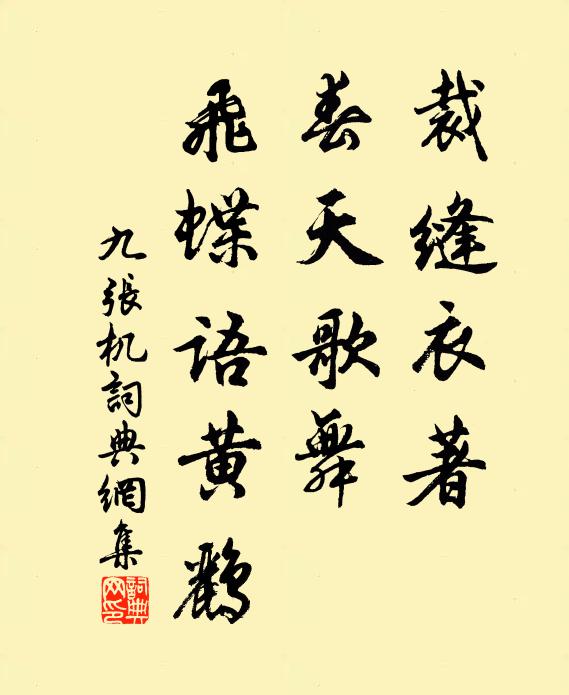 裁縫衣著
春天歌舞
飛蝶語黄鸝
九張机詞典網集
詞典网印